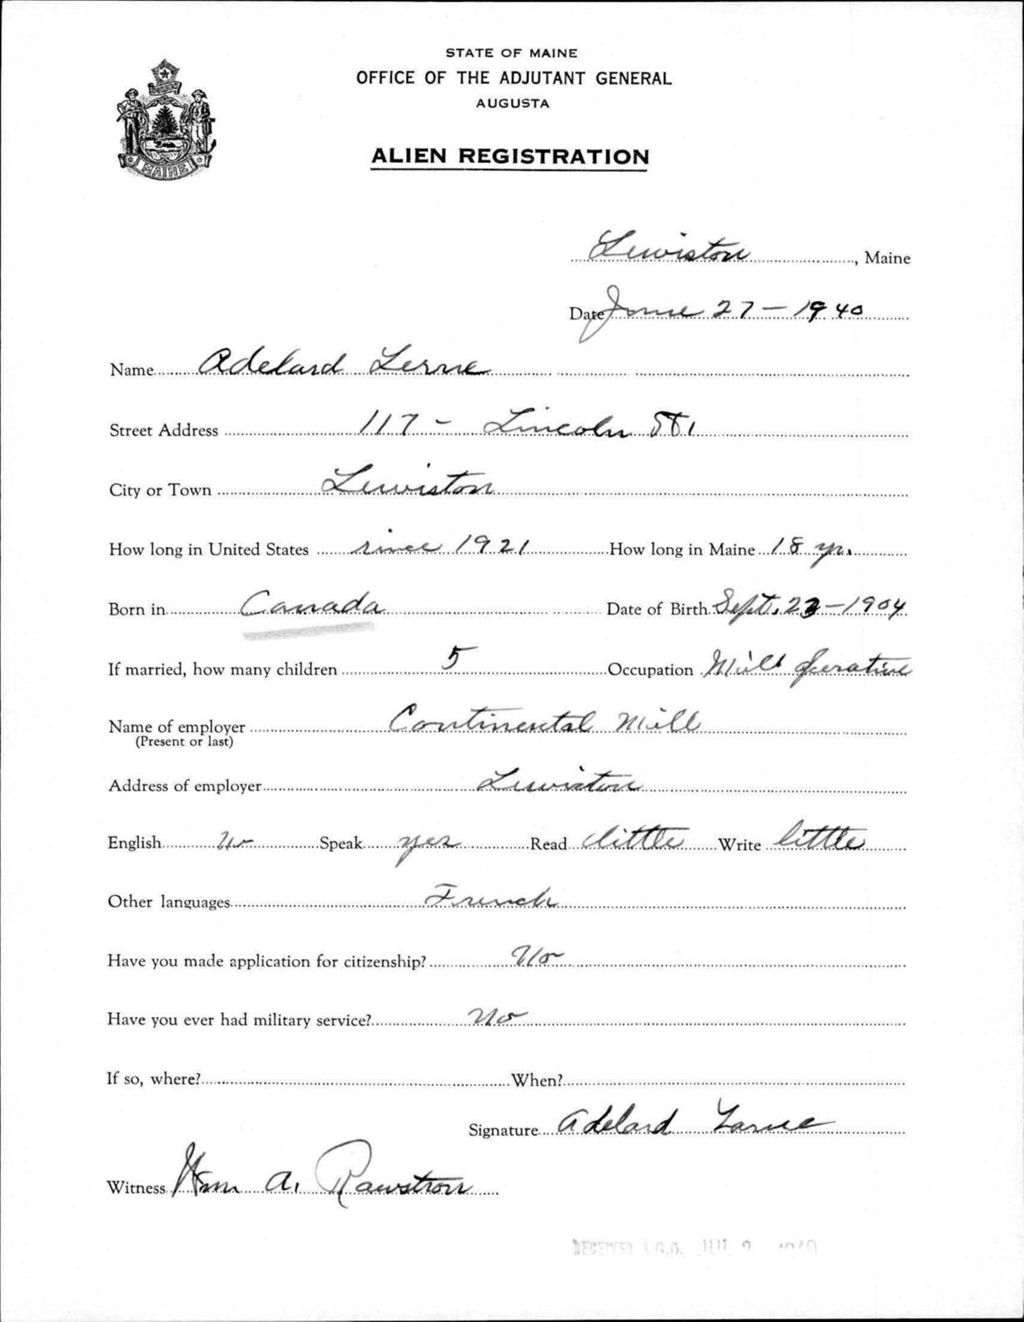 STATE OF MAINE
OFFICE OF THE ADJUTANT GENERAL
AUGUSTA
MAINE
ALIEN REGISTRATION
Lewiston, Maine
Date June 27 - 1940
Name Adelard Lerne
Street Address 117 - Lincoln St.
City or Town Lewiston
How long in United States since 1921 How long in Maine 18 yr.
Born in Canada Date of Birth Sept. 23 - 1904
If married, how many children 5 Occupation Mill Operative
Name of employer Continental Mill
(Present or last)
Address of employer Lewiston
English No Speak yes Read little Write little
Other languages French
Have you made application for citizenship? No
Have you ever had military service? No
If so, where? When?
Signature Adelard
Witness Wm A. Rawstron
RECEIVED A.G.O. JUL 2 1940